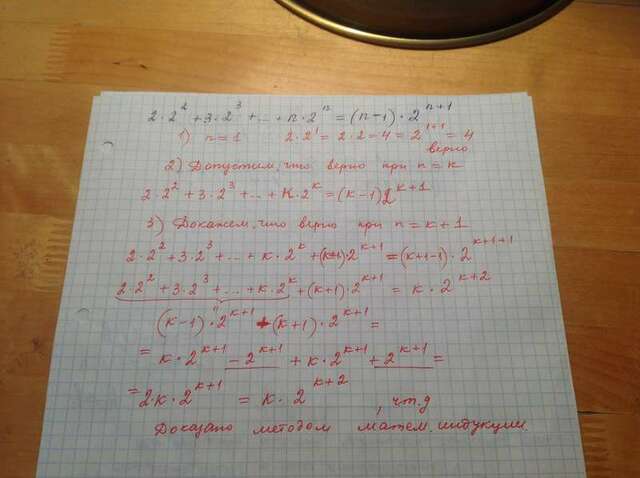 2·2² + 3·2³ + ... + n·2ⁿ = (n-1)·2ⁿ⁺¹
1) n=1 2·2¹ = 2·2 = 4 = 2¹⁺¹ = 4
верно
2) Допустим, что верно при n=к
2·2² + 3·2³ + ... + к·2ᵏ = (к-1)2ᵏ⁺¹
3) Докажем, что верно при n=к+1
2·2² + 3·2³ + ... + к·2ᵏ + (к+1)·2ᵏ⁺¹ = (к+1-1)·2ᵏ⁺¹⁺¹
2·2² + 3·2³ + ... + к·2ᵏ + (к+1)·2ᵏ⁺¹ = к·2ᵏ⁺²
(к-1)·2ᵏ⁺¹ + (к+1)·2ᵏ⁺¹ =
= к·2ᵏ⁺¹ - 2ᵏ⁺¹ + к·2ᵏ⁺¹ + 2ᵏ⁺¹ =
= 2·к·2ᵏ⁺¹ = к·2ᵏ⁺², чт.д
Доказано методом матем. индукции.